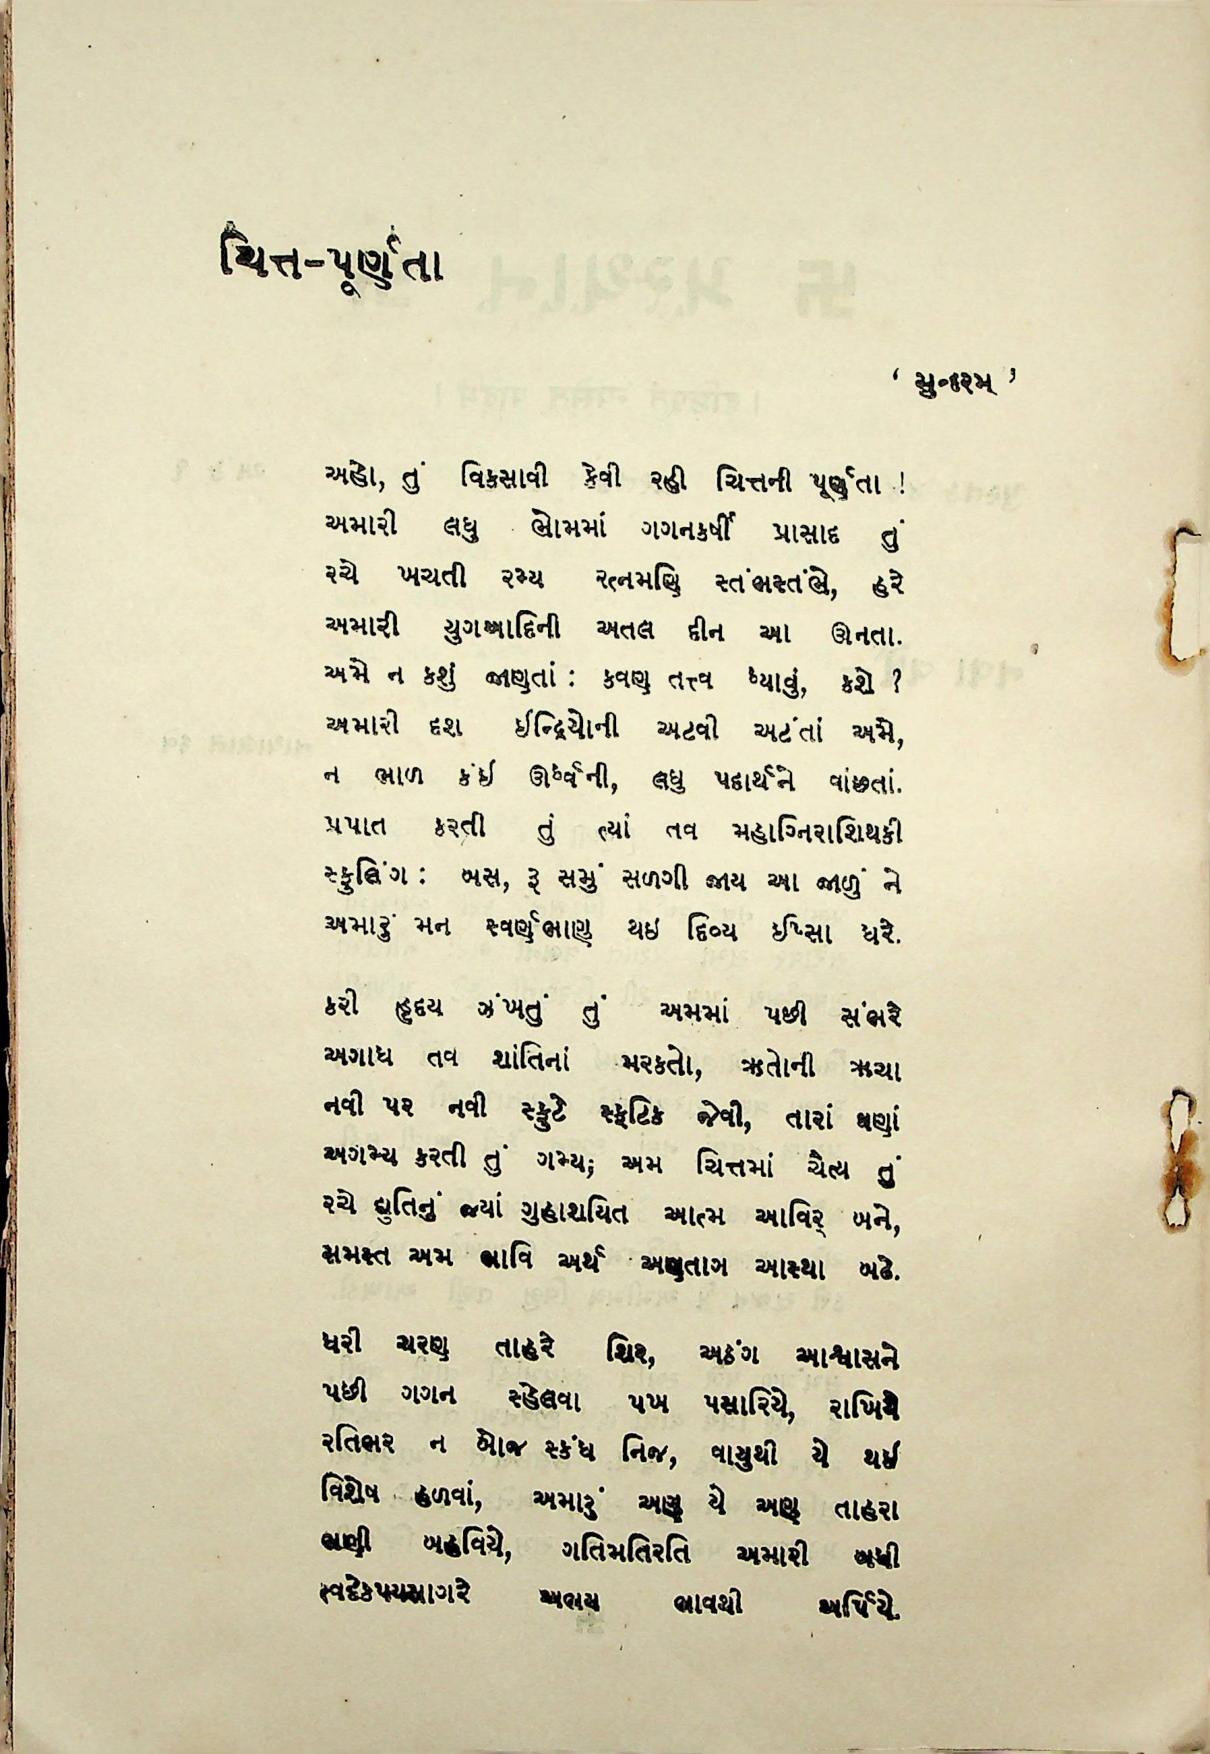 ચિત્ત-પૂર્ણતા
‘ સુન્દરમ્ ’
અહો, તું વિકસાવી કેવી રહી ચિત્તની પૂર્ણતા !
અમારી લઘુ ભોમમાં ગગનકર્ષી પ્રાસાદ તું
રચે ખચતી રમ્ય રત્નમણિ સ્તંભસ્તંભે, હરે
અમારી યુગઆદિની અતલ દીન આ ઊનતા.
અમે ન કશું જાણતાં : કવણ તત્ત્વ ધ્યાવું, કશે ?
અમારી દશ ઈન્દ્રિયોની અટવી અટંતાં અમે,
ન ભાળ કંઈ ઊર્ધ્વની, લઘુ પદાર્થને વાંછતાં.
પ્રપાત કરતી તું ત્યાં તવ મહાગ્નિરાશિથકી
સ્ફુલિંગ : બસ, રૂ સમું સળગી જાય આ જાળું ને
અમારું મન સ્વર્ણભાણ થઇ દિવ્ય ઈપ્સા ધરે.
કરી હૃદય ઝંખતું તું અમમાં પછી સંભરે
અગાધ તવ શાંતિનાં મરકતો, ઋતોની ઋચા
નવી પર નવી સ્ફુટે સ્ફટિક જેવી, તારાં ઘણાં
અગમ્ય કરતી તું ગમ્ય; અમ ચિત્તમાં ચૈત્ય તું
રચે દ્યુતિનું જ્યાં ગુહાશયિત આત્મ આવિર્ બને,
સમસ્ત અમ ભાવિ અર્થ અણતાગ આસ્થા બઢે.
ધરી ચરણ તાહરે શિર, અઠંગ આશ્વાસને
પછી ગગન સ્હેલવા પખ પસારિયે, રાખિયે
રતિભર ન બોજ સ્કંધ નિજ, વાયુથી યે થઈ
વિશેષ હળવાં, અમારું અણુ યે અણુ તાહરા
ભણી બહવિયે, ગતિમતિરતિ અમારી બધી
ત્વદેકપયસાગરે અભય ભાવથી અર્પિયે.